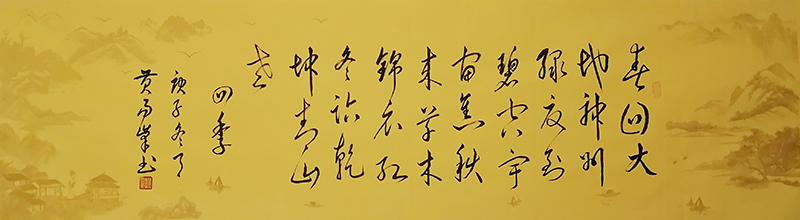 春回大
地神州
绿夏到
碧空宇
宙焦秋
来草木
锦衣红
冬乾
坤青山
老
四季
庚子冬月
黄峰书